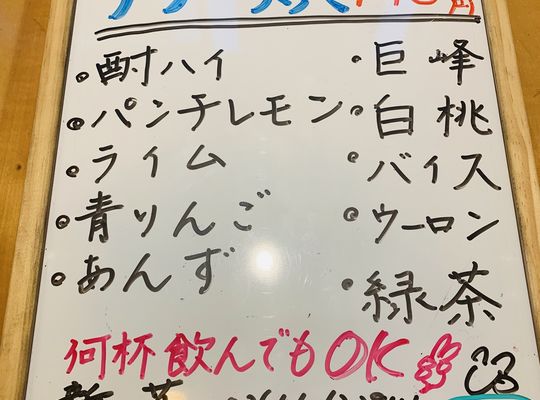 酎ハイ
パンチレモン
ライム
青りんご
あんず
巨峰
白桃
バイス
ウーロン
緑茶
何杯飲んでもOK